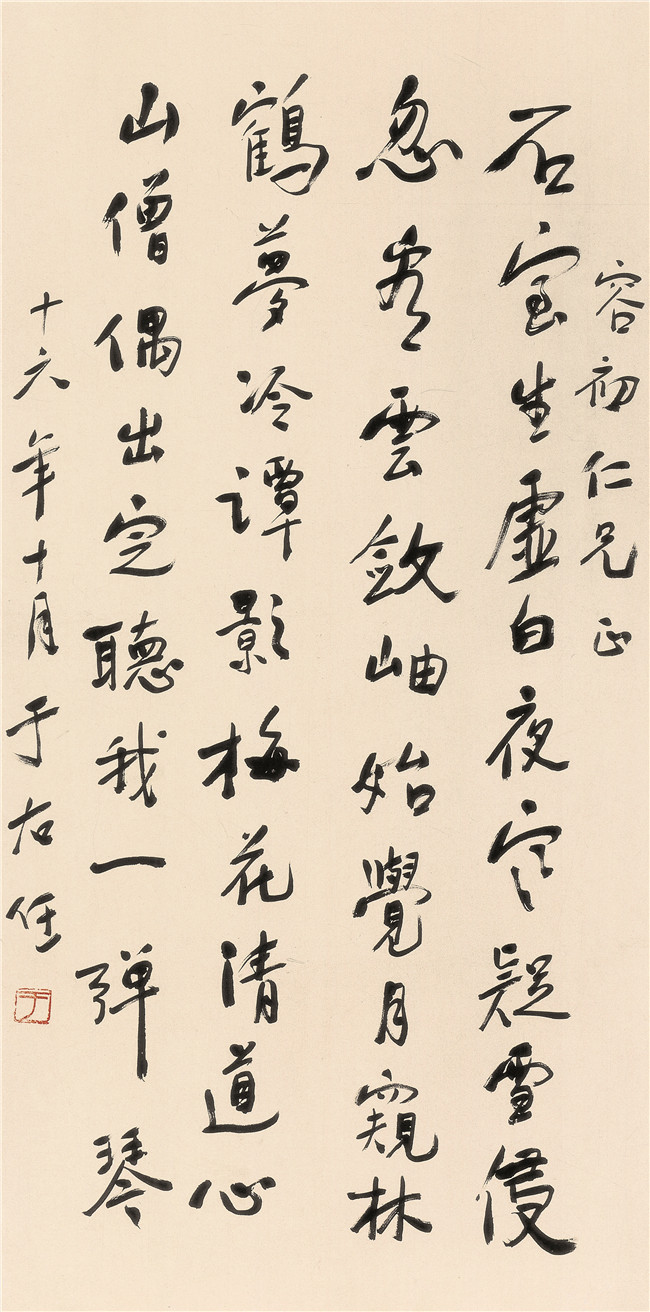 容初仁兄正
石室生虛白夜寒疑雪侵
忽看雲斂岫始覺月窺林
鶴夢冷譚影梅花清道心
山僧偶出定聽我一弹琴
十六年十月于右任
于